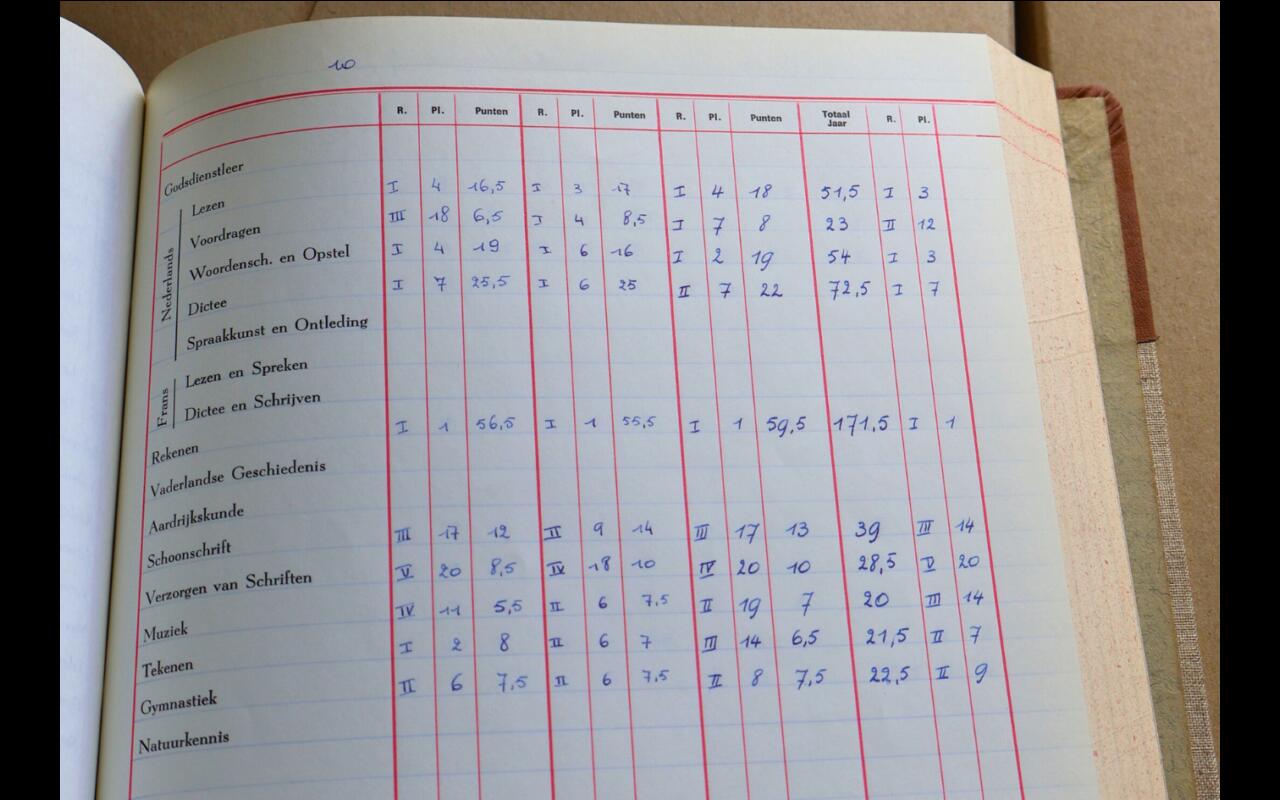 10
R. Pl. Punten R. Pl. Punten R. Pl. Punten Totaal Jaar R. Pl.
Godsdienstleer
Nederlands
Lezen I 4 16,5 I 3 17 I 4 18 51,5 I 3
Voordragen III 18 6,5 I 4 8,5 I 7 8 23 II 12
Woordensch. en Opstel I 4 19 I 6 16 I 2 19 54 I 3
Dictee I 7 25,5 I 6 25 II 7 22 72,5 I 7
Spraakkunst en Ontleding
Frans
Lezen en Spreken
Dictee en Schrijven
Rekenen I 1 56,5 I 1 55,5 I 1 59,5 171,5 I 1
Vaderlandse Geschiedenis
Aardrijkskunde
Schoonschrift III 17 12 II 9 14 III 17 13 39 III 14
Verzorgen van Schriften V 20 8,5 IV 18 10 IV 20 10 28,5 V 20
Muziek IV 11 5,5 II 6 7,5 II 19 7 20 III 14
Tekenen I 2 8 II 6 7 III 14 6,5 21,5 II 7
Gymnastiek II 6 7,5 II 6 7,5 II 8 7,5 22,5 II 9
Natuurkennis